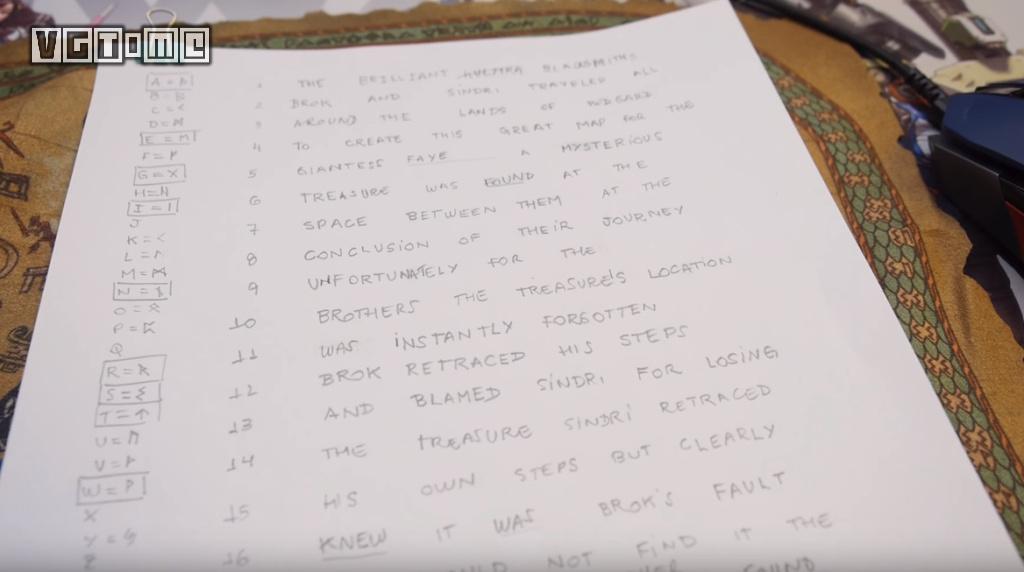 VGTIME
A = ᚨ
B = ᛒ
C = ᚲ
D = ᛗ
E = ᛖ
F = ᚹ
G = X
H = ᚺ
I = I
J
K = <
L = ᛚ
M = ᛗ
N =
O = ᛟ
P =
Q
R = ᚱ
S =
T = ↑
U = ᚢ
V =
W = P
X
Y =
Z
1 THE BRILLIANT BLACKSMITHS
2 BROK AND SINDRI TRAVELED ALL
3 AROUND THE LANDS OF MIDGARD
4 TO CREATE THIS GREAT MAP FOR THE
5 GIANTESS FAYE A MYSTERIOUS
6 TREASURE WAS FOUND AT THE
7 SPACE BETWEEN THEM AT THE
8 CONCLUSION OF THEIR JOURNEY
9 UNFORTUNATELY FOR THE
10 BROTHERS THE TREASURE'S LOCATION
11 WAS INSTANTLY FORGOTTEN
12 BROK RETRACED HIS STEPS
13 AND BLAMED SINDRI FOR LOSING
14 THE TREASURE SINDRI RETRACED
15 HIS OWN STEPS BUT CLEARLY
16 KNEW IT WAS BROK'S FAULT
NOT FIND IT THE
FOUND